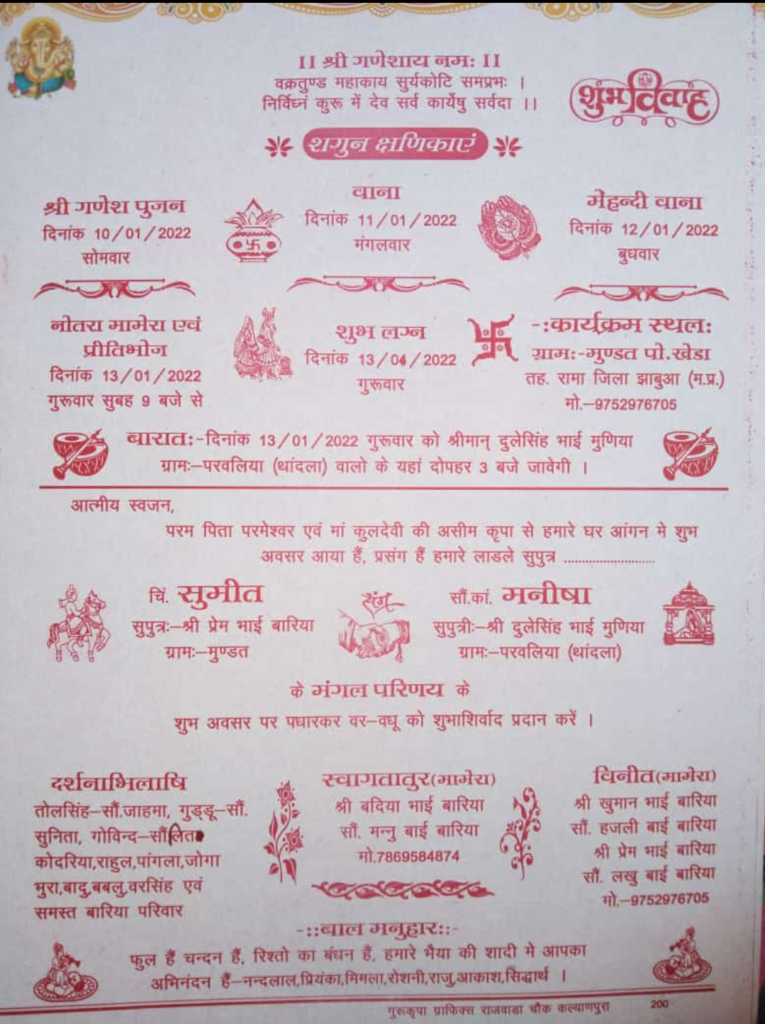 ।। श्री गणेशाय नमः ।।
वक्रतुण्ड महाकाय सुर्यकोटि समप्रभः ।
निर्विघ्नं कुरू में देव सर्व कार्येषु सर्वदा ।।
शुभ विवाह
शगुन क्षणिकाएं
श्री गणेश पुजन
दिनांक 10/01/2022
सोमवार
वाना
दिनांक 11/01/2022
मंगलवार
मेहन्दी वाना
दिनांक 12/01/2022
बुधवार
नोतरा मामेरा एवं
प्रीतिभोज
दिनांक 13/01/2022
गुरूवार सुबह 9 बजे से
शुभ लग्न
दिनांक 13/01/2022
गुरूवार
-:कार्यक्रम स्थल:
ग्रामः-मुण्डत पो.खेडा
तह. रामा जिला झाबुआ (म.प्र.)
मो.-9752976705
बारातः-दिनांक 13/01/2022 गुरूवार को श्रीमान् दुलेसिंह भाई मुणिया
ग्रामः-परवलिया (थांदला) वालो के यहां दोपहर 3 बजे जावेगी ।
आत्मीय स्वजन,
परम पिता परमेश्वर एवं मां कुलदेवी की असीम कृपा से हमारे घर आंगन मे शुभ
अवसर आया हैं, प्रसंग हैं हमारे लाडले सुपुत्र ........................
चिं. सुमीत
सुपुत्रः-श्री प्रेम भाई बारिया
ग्रामः-मुण्डत
संग
सौं.कां. मनीषा
सुपुत्रीः-श्री दुलेसिंह भाई मुणिया
ग्रामः-परवलिया (थांदला)
के मंगल परिणय के
शुभ अवसर पर पधारकर वर-वधू को शुभाशिर्वाद प्रदान करें ।
दर्शनाभिलाषि
तोलसिंह-सौं.जाहमा, गुड्डू-सौं.
सुनिता, गोविन्द-सौं
कोदरिया,राहुल,पांगला,जोगा
भुरा,बादु,बबलु,वरसिंह एवं
समस्त बारिया परिवार
स्वागतातुर(मामेरा)
श्री बदिया भाई बारिया
सौं. मन्नु बाई बारिया
मो.7869584874
विनीत(मामेरा)
श्री खुमान भाई बारिया
सौं. हजली बाई बारिया
श्री प्रेम भाई बारिया
सौं. लखु बाई बारिया
मो.-9752976705
-::बाल मनुहार::-
फुल हैं चन्दन हैं, रिश्तो का बंधन हैं, हमारे भैया की शादी मे आपका
अभिनंदन हैं-नन्दलाल,प्रियंका,मिगला,रोशनी,राजु,आकाश,सिद्धार्थ ।
गुरूकृपा ग्राफिक्स राजवाडा चौक कल्याणपुरा 200